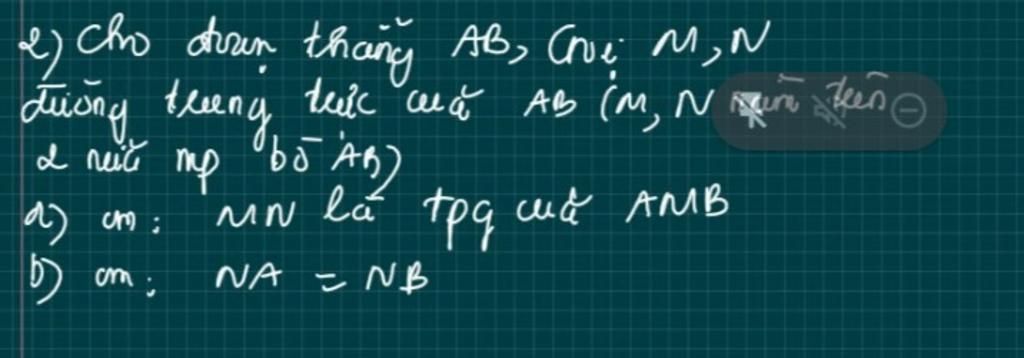 2) Cho đoạn thẳng AB, Gọi M, N
đường trung trực của AB (M, N nằm trên
2 nửa mp bờ AB)
a) cm: MN là tpg của AMB
b) cm: NA = NB